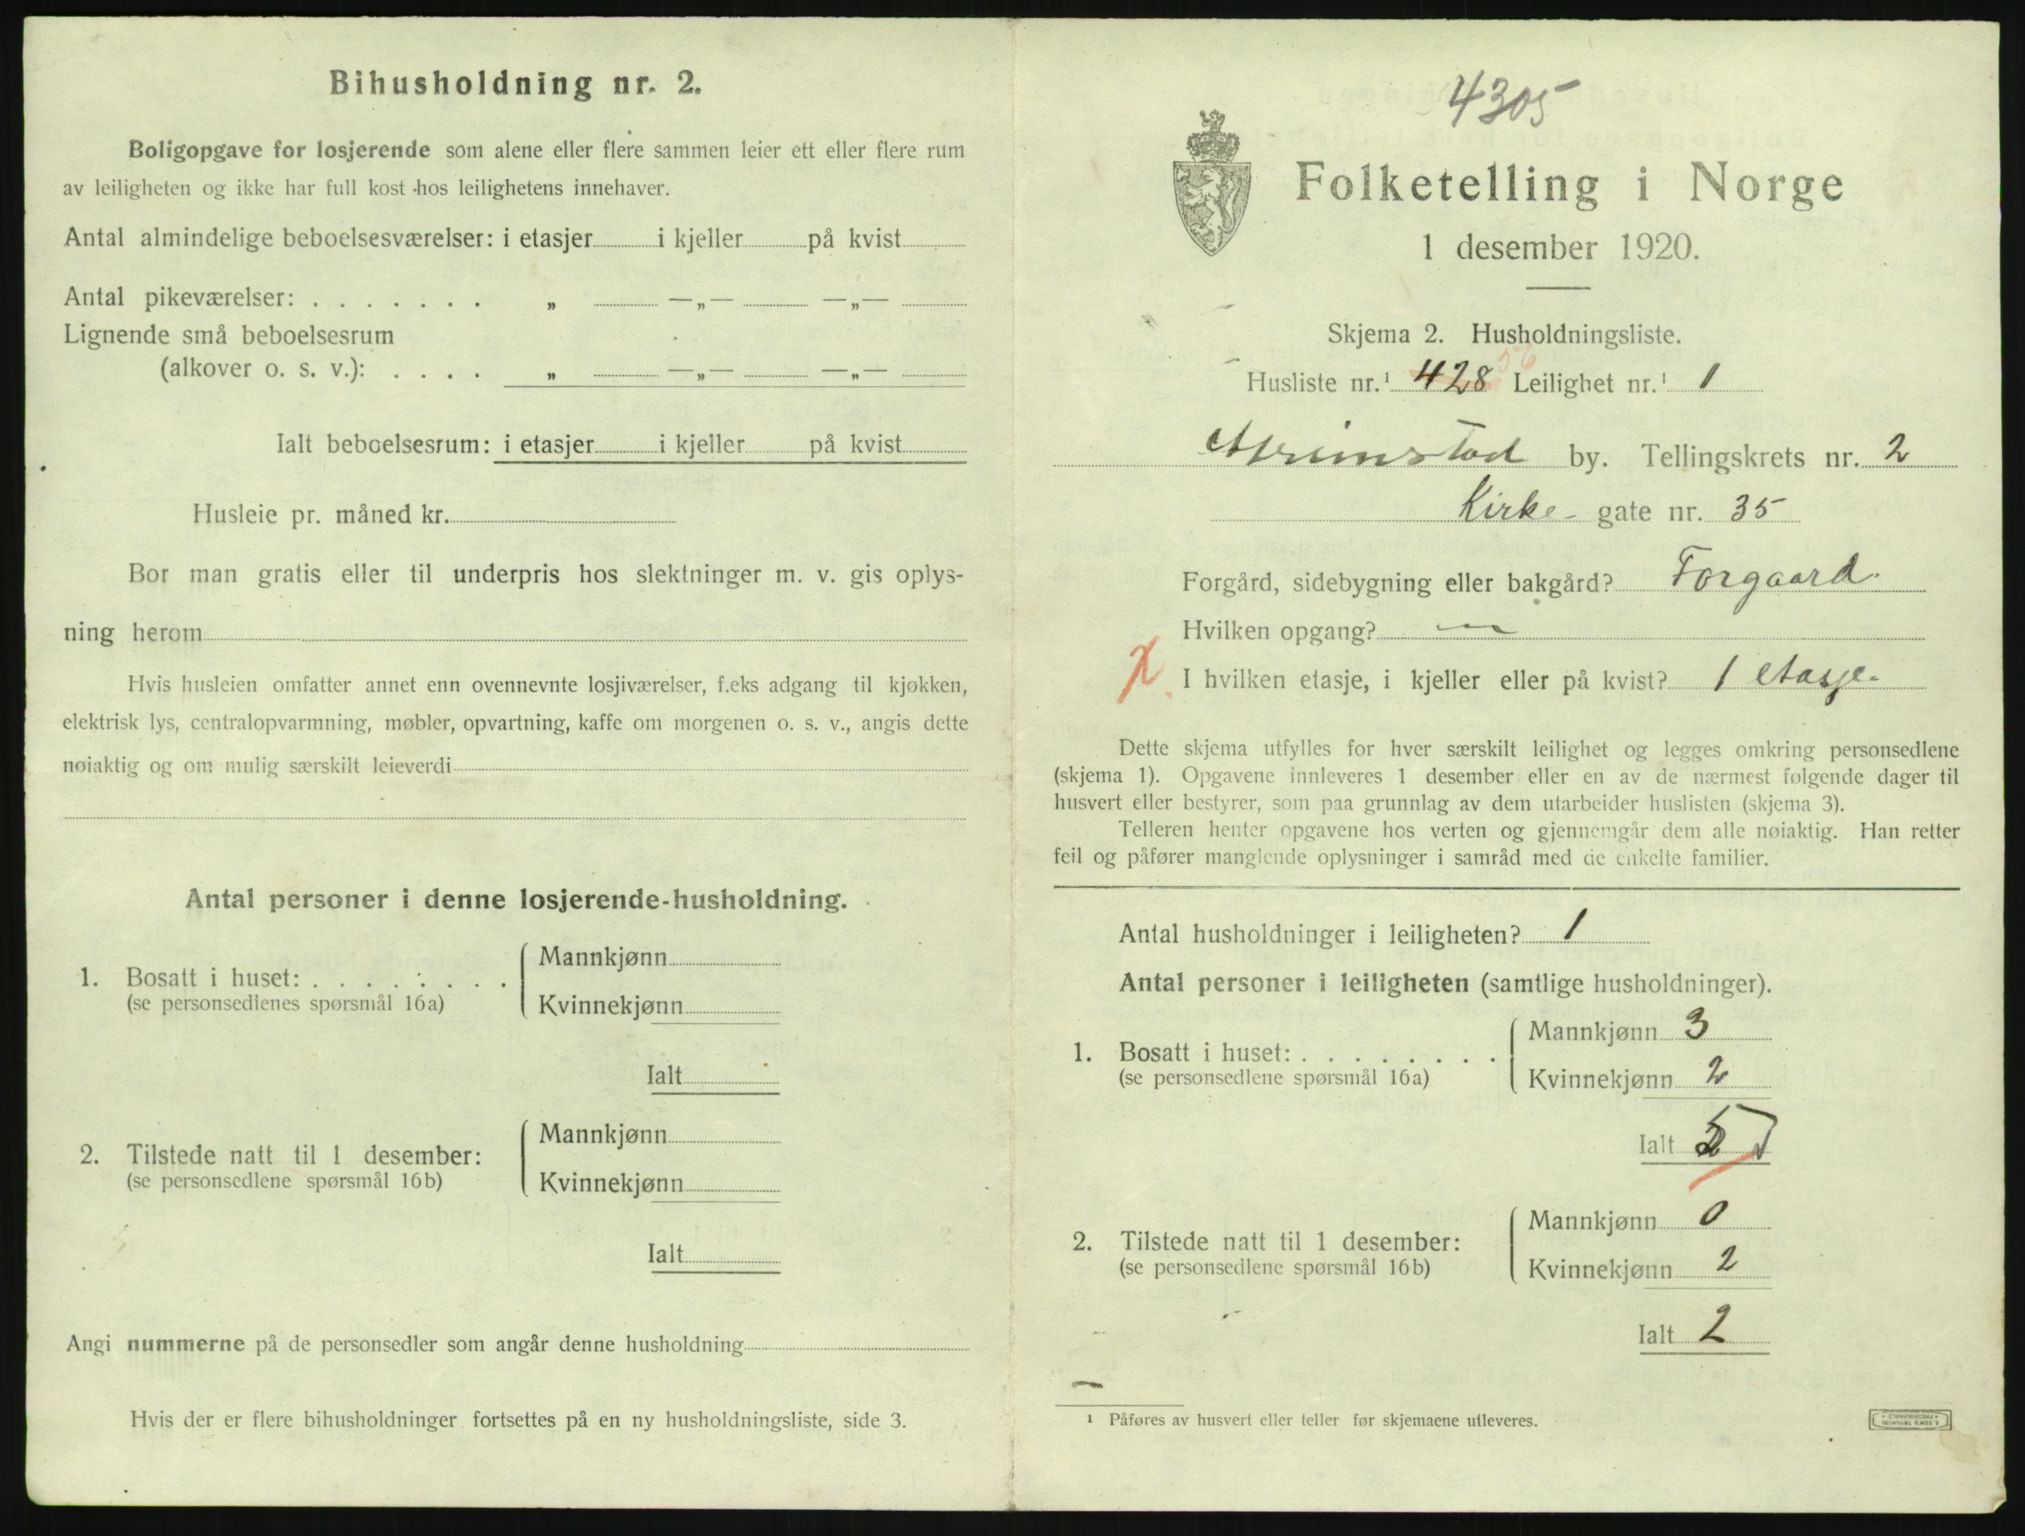 Bihusholdning nr. 2.
Boligopgave for losjerende som alene eller flere sammen leier ett eller flere rum
av leiligheten og ikke har full kost hos leilighetens innehaver.
Antal almindelige beboelsesværelser: i etasjer i kjeller på kvist
Antal pikeværelser: . . . . . . . „ —„— —„—
Lignende små beboelsesrum
(alkover o. s. v.): . . . . „ —„— —„—
Ialt beboelsesrum: i etasjer i kjeller på kvist
Husleie pr. måned kr.
Bor man gratis eller til underpris hos slektninger m. v. gis oplys-
ning herom
Hvis husleien omfatter annet enn ovennevnte losjiværelser, f.eks adgang til kjøkken,
elektrisk lys, centralopvarmning, møbler, opvartning, kaffe om morgenen o. s. v., angis dette
nøiaktig og om mulig særskilt leieverdi
Antal personer i denne losjerende-husholdning.
Mannkjønn
1. Bosatt i huset: . . . . . . . .
(se personsedlenes spørsmål 16a)
Kvinnekjønn
Ialt
Mannkjønn
2. Tilstede natt til 1 desember:
(se personsedlene spørsmål 16b)
Kvinnekjønn
Ialt
Angi nummerne på de personsedler som angår denne husholdning
Hvis der er flere bihusholdninger fortsettes på en ny husholdningsliste, side 3.
4305
Folketelling i Norge
1 desember 1920.
Skjema 2. Husholdningsliste.
56
Husliste nr.¹ 428 Leilighet nr.¹ 1
Grimstad by. Tellingskrets nr. 2
Kirke- gate nr. 35
Forgård, sidebygning eller bakgård? Forgaard.
Hvilken opgang? —
X I hvilken etasje, i kjeller eller på kvist? 1 etasje.
Dette skjema utfylles for hver særskilt leilighet og legges omkring personsedlene
(skjema 1). Opgavene innleveres 1 desember eller en av de nærmest følgende dager til
husvert eller bestyrer, som paa grunnlag av dem utarbeider huslisten (skjema 3).
Telleren henter opgavene hos verten og gjennemgår dem alle nøiaktig. Han retter
feil og påfører manglende oplysninger i samråd med de enkelte familier.
Antal husholdninger i leiligheten? 1
Antal personer i leiligheten (samtlige husholdninger).
Mannkjønn 3
1. Bosatt i huset: . . . . . . . .
(se personsedlene spørsmål 16a)
Kvinnekjønn 2
Ialt 5
Mannkjønn 0
2. Tilstede natt til 1 desember:
(se personsedlene spørsmål 16b)
Kvinnekjønn 2
Ialt 2
¹ Påføres av husvert eller teller før skjemaene utleveres.